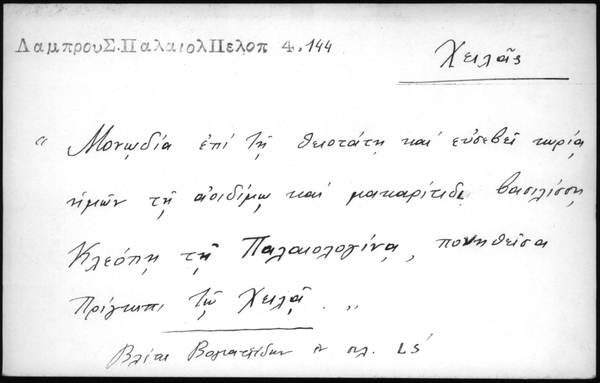 ΛαμπρουΣ.ΠαλαιολΠελοπ 4.144
Χειλᾶς
“ Μονῳδία ἐπὶ τῇ θειοτάτῃ καὶ εὐσεβεῖ κυρίᾳ
ἡμῶν τῇ ἀοιδίμῳ καὶ μακαρίτιδι βασιλίσσῃ
Κλεόπῃ τῇ Παλαιολογίνᾳ, πονηθεῖσα
Πρίγκιπι τῷ Χειλᾷ. „
Βλέπε σελ.